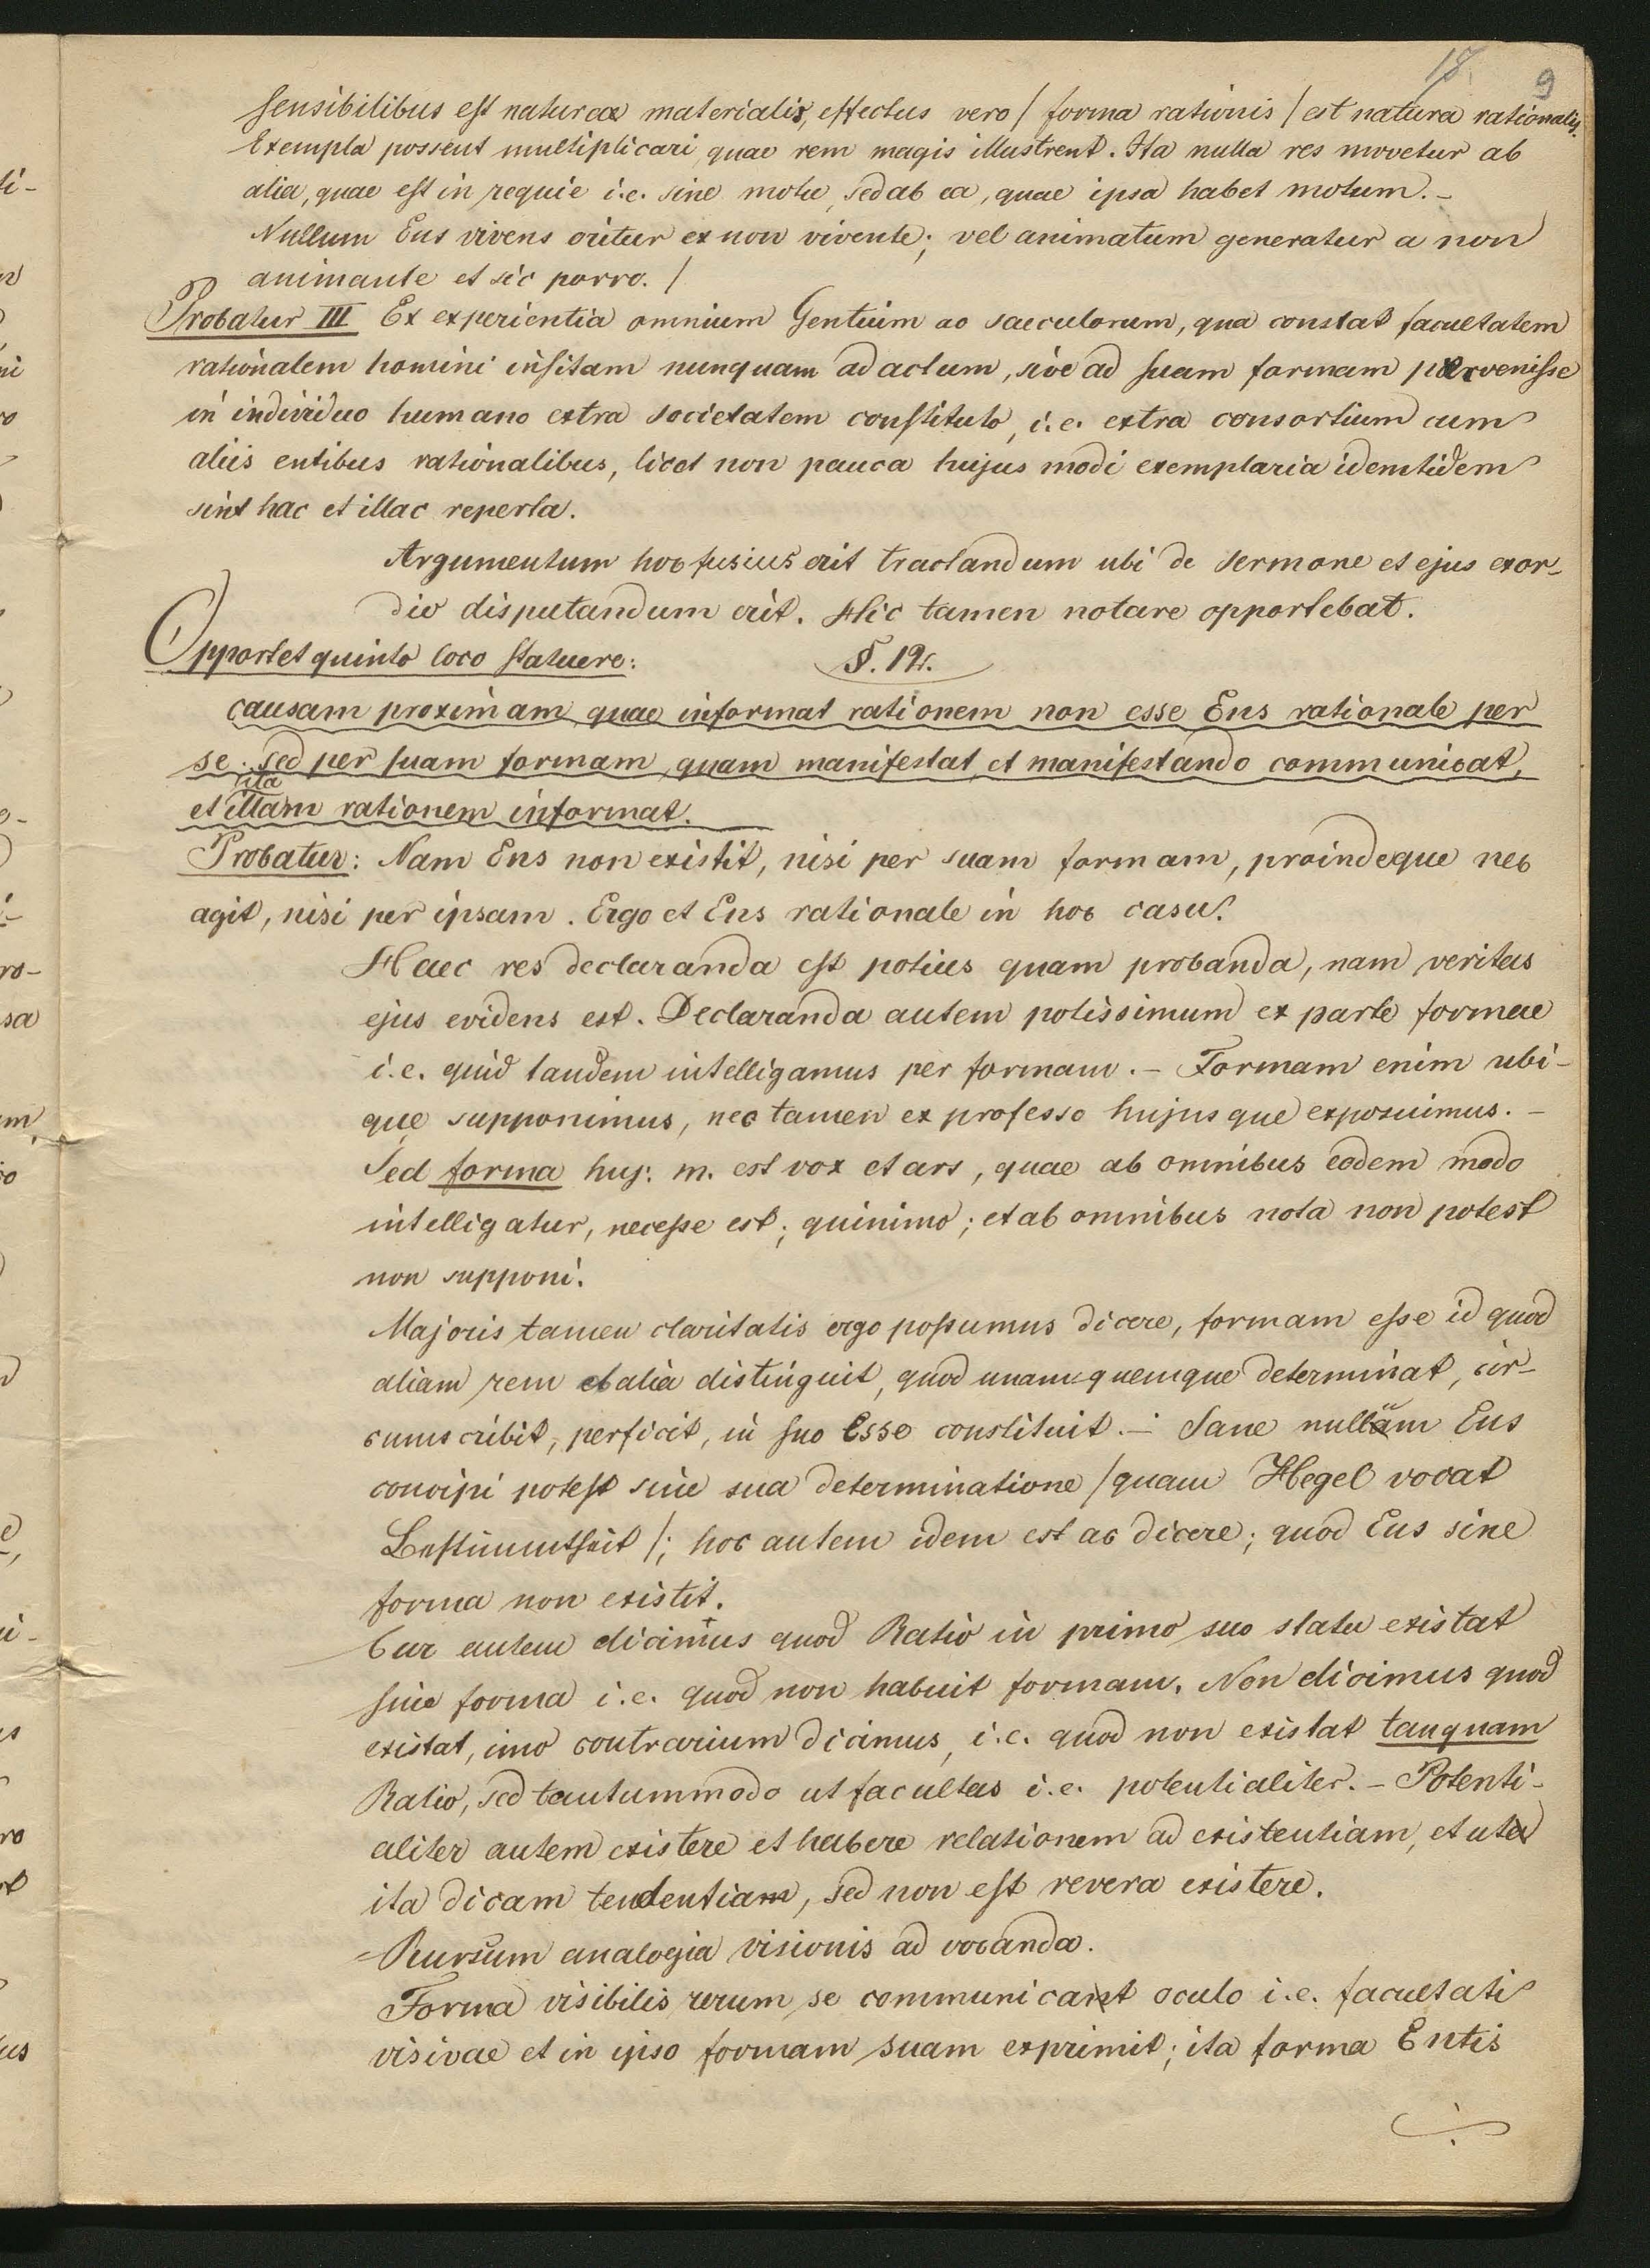 18. 9
sensibilibus est naturae materialis, effectus vero / forma rationis / est natura rationalis.
Exempla possent multiplicari quae rem magis illustrent. Ita nulla res movetur ab
alia, quae est in requie i.e. sine motu, sed ab ea, quae ipsa habet motum. –
Nullum Ens vivens oritur ex non vivente; vel animatum generatur a non
animante et sic porro. /
Probatur III Ex experientia omnium Gentium ac saeculorum, qua constat facultatem
rationalem homini insitam nunquam ad actum, sive ad suam formam pervenisse
in individuo humano extra societatem constituto, i.e. extra consortium cum
aliis entibus rationalibus, licet non pauca hujus modi exemplaria idemtidem
sint hac et illac reperta.
Argumentum hoc fusius erit tractandum ubi de sermone et ejus exor-
dio disputandum erit. Hic tamen notare opportebat.
Opportet quinto loco statuere: §. 12.
causam proximam quae informat rationem non esse Ens rationale per
se; sed per suam formam, quam manifestat, et manifestando communicat,
ita
et illam rationem informat.
Probatur: Nam Ens non existit, nisi per suam formam, proindeque nec
agit, nisi per ipsam. Ergo et Ens rationale in hoc casu.
Haec res declaranda est potius quam probanda, nam veritas
ejus evidens est. Declaranda autem potissimum ex parte formae
i.e. quid tandem intelligamus per formam. – Formam enim ubi-
que supponimus, nec tamen ex professo hujusque exposuimus. –
Sed forma huj: m. est vox et ars, quae ab omnibus eodem modo
intelligatur, necesse est; quinimo; et ab omnibus nota non potest
non supponi.
Majoris tamen claritatis ergo possumus dicere, formam esse id quod
aliam rem ab alia distinguit, quod unamquemque determinat, cir-
cumscribit, perficit, in suo Esse constituit. – Sane nullum Ens
concipi potest sine sua determinatione / quam Hegel vocat
Bestimmtheit /; hoc autem idem est ac dicere; quod Ens sine
forma non existit.
Cur autem dicimus quod Ratio in primo suo statu existat
sine forma i.e. quod non habuit formam. Non dicimus quod
existat, imo contrarium dicimus, i.e. quod non existat tanquam
Ratio, sed tantummodo ut facultas i.e. potentialiter. – Potenti-
aliter autem existere et habere relationem ad existentiam, et ut
ita dicam tendentiam, sed non est revera existere.
Rursum analogia visionis ad vocanda.
Forma visibilis rerum se communicat oculo i.e. facultati
visivae et in ipso formam suam exprimit; ita forma Entis